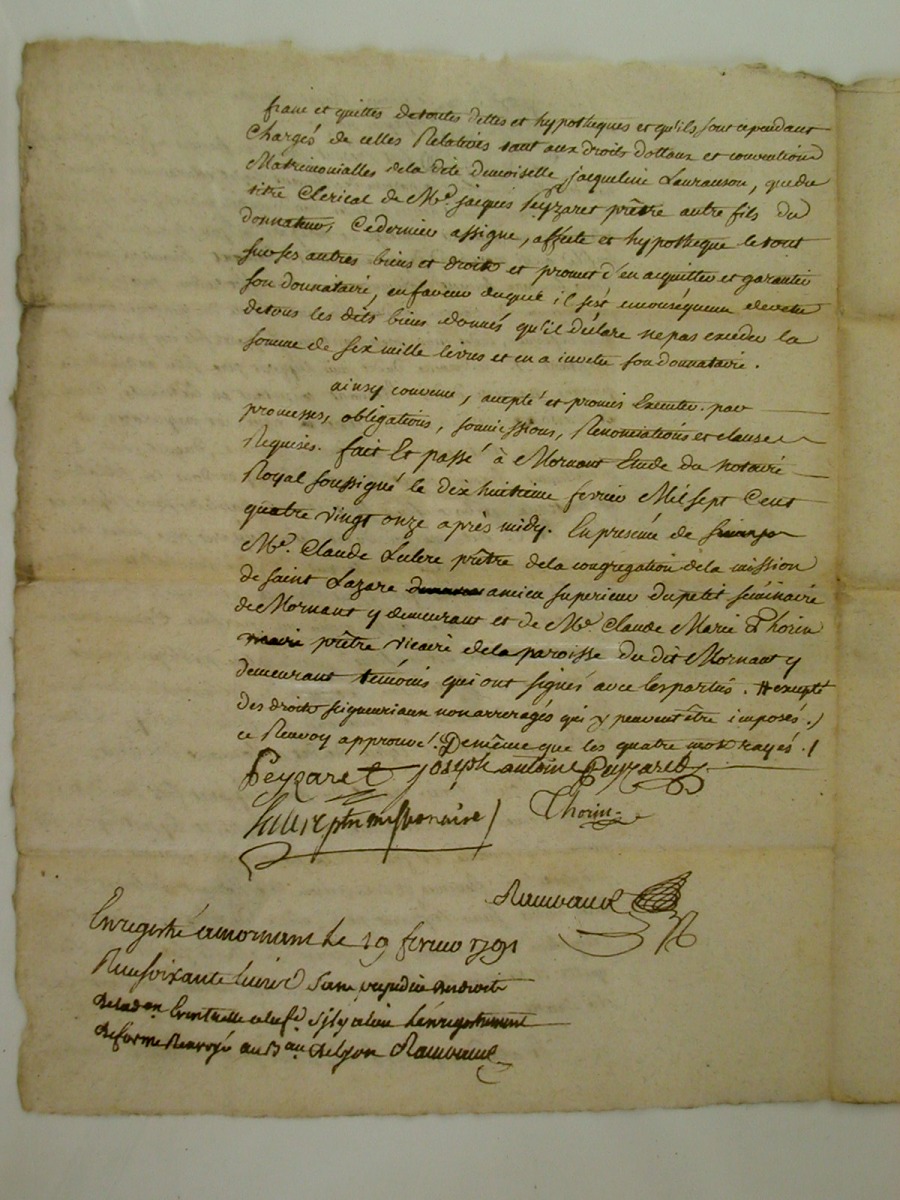 franc et quittes de toutes dettes et hypotheques et qu'ils sont cependant
Chargés de celles Relatives tant aux droits dottaux et conventions
Matrimonialles de la dite demoiselle jacqueline Lauranson, que du
titre Clerical de Mre. jacques Peyzaret prêtre autre fils du
donnateur, Ce dernier assigne, affecte et hypotheque le tout
sur ses autres biens et droits et promet d'en acquitter et garantir
son donnataire, en faveur duquel il s'est en conséquence devetu
de tous les dits biens donnés qu'il déclare ne pas exceder la
somme de six mille livres et en a investu son donnataire.
ainsy convenu, accepté et promis Executer par
promesses, obligations, soumissions, Renonciations et clauses
Requises. fait Et passé à Mornant Etude du notaire
Royal soussigné le dix huitieme fevrier Mil sept Cent
quatre vingt onze après midy. En presence de
Mre. Claude Leclerc prêtre de la congregation de la mission
de saint Lazare ancien superieur du petit séminaire
de Mornant y demeurant et de Mre. Claude Marie Thorin
vicaire prêtre vicaire de la paroisse du dit Mornant y
demeurant témoins qui ont signés avec les parties. # excepté
des droits seigneuriaux non arreragés qui y peuvent être imposés./
ce Renvoy approuvé. De même que les quatre mots rayés./
Peyzaret joseph antoine Peyzaret
ptre missionaire Thorin
Rambaud
Enregistré a mornant le 19 fevrier 1791
Reçu soixante livres Sans prejudice du droit
L'enregistrement
de forme Renvoyé au Bau de Lyon Rambaud